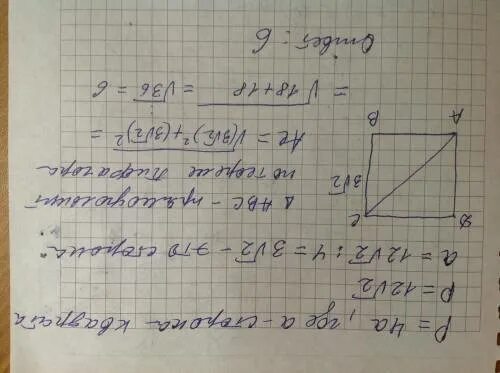 P = 4a, где a - сторона квадрата
P = 12√2
a = 12√2 : 4 = 3√2 - это сторона.
Δ ABC - прямоугольный
по теореме Пифагора
AC = √(3√2)² + (3√2)² =
= √18 + 18 = √36 = 6
Ответ: 6
A
B
3√2
C
D